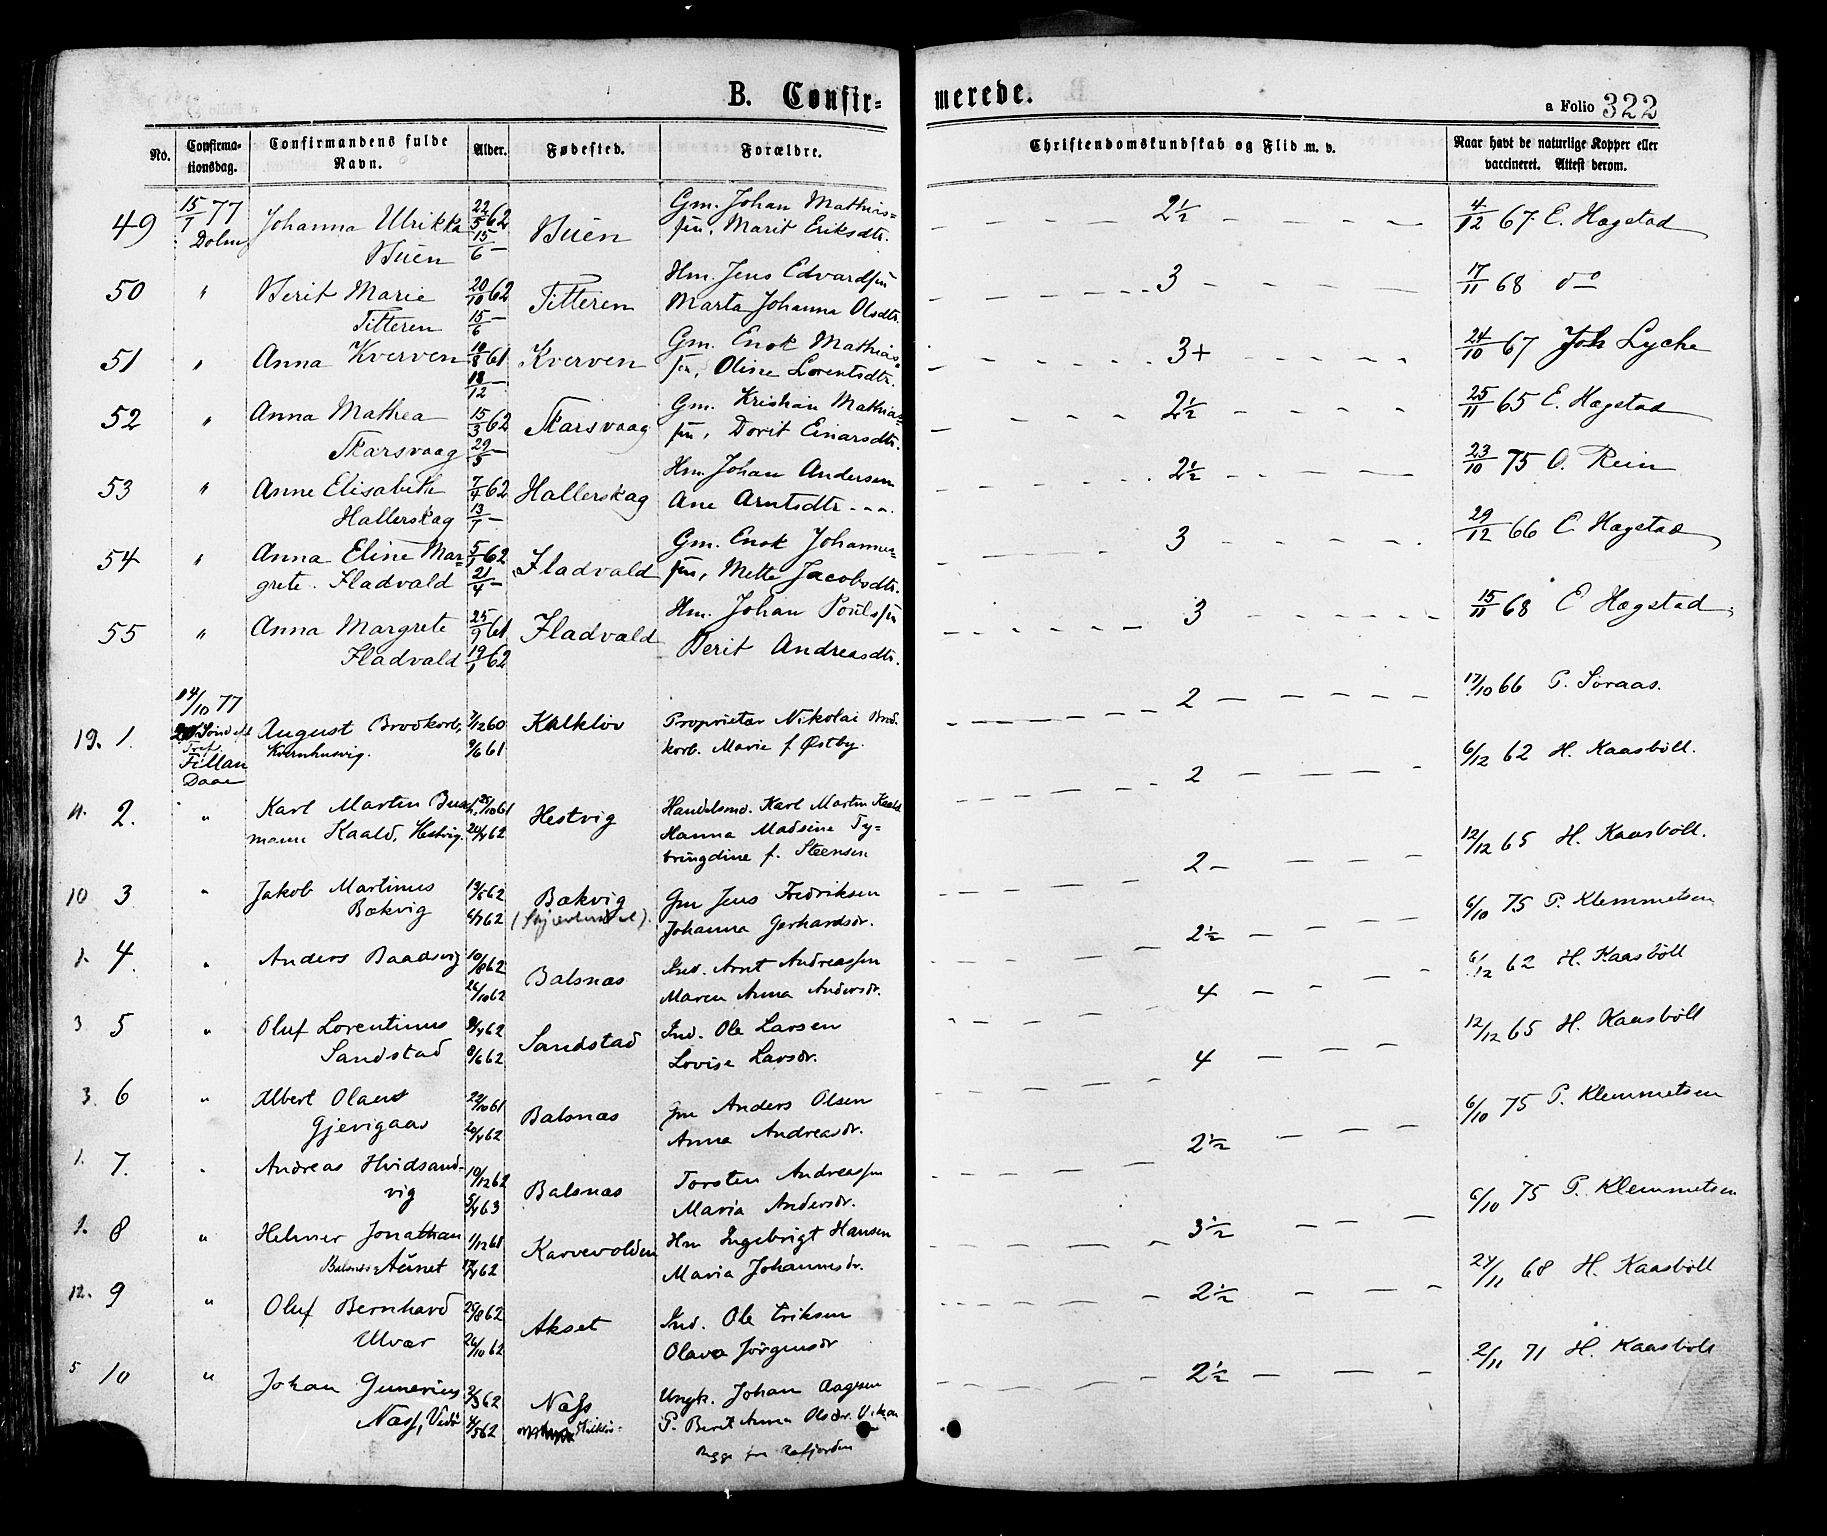 B. Confir-
merede.
a Folio 322
No.
Confirma-
tionsdag.
Confirmandens fulde
Navn.
Alder.
Fødested.
Forældre.
Christendomskundskab og Flid m. v.
Naar havt de naturlige Kopper eller
vaccineret. Attest derom.
49 15/7 77 Johanna Ulrikka 22/5 62 Buen Gm. Johan Mathias= 2½ 4/12 67 E. Hagstad
Dolm Buen 15/6 — sen, Marit Eriksdtr.
50 " Berit Marie 20/10 62 Titteren Hm. Jens Edvardsen 3 17/11 68 do
Titteren 15/6 — Marta Johanna Olsdtr.
51 " Anna Kverven 61 Kverven Gm. Enok Mathias= 3+ 24/10 67 Joh Lyche
18/12 — sen, Oline Lorentsdtr.
52 " Anna Mathea 15/3 62 Skarsvaag Gm. Kristian Mathias= 2½ 25/11 65 E. Hagstad
Skarsvaag 29/5 — sen, Dorit Einarsdtr.
53 " Anne Elisabeth 7/4 62 Hallerskag Hm. Johan Andersen 2½ 23/10 75 O. Rein
Hallerskag 13/7 — Ane Arntsdtr
54 " Anna Eline Mar= 5/1 62 Fladvald Gm. Enok Johannes= 3 29/12 66 E Hagstad
grete. Fladvald 21/4 — sen, Mette Jacobsdtr.
55 " Anna Margrete 25/9 61 Fladvald Hm. Johan Poulsen 3 15/11 68 E Hagstad
Fladvald 19/1 62 Berit Andreasdtr.
14/10 77 2 17/10 66 P. Soraas.
19. 1. August Brodkorb, 7/12 60 Kalkløv Proprietær Nikolai Brod.
Fillan Kvernhusvig. 9/6 61 korb. Marie f Østby.
Daae 2 6/12 62 H. Kaasbøll.
2. " Karl Martin Bus 61 Hestvig Handelsmd. Karl Martin Kaald
mann Kaald, Hestvig. 62 Hanna Madsine Ty=
bringdine f. Steensen
2 12/12 65 H. Kaasbøll.
10 3 " Jakob Martinus 62 Bækvig Gm Jens Fredriksen
Bækvig 62 Johanna Gerhardsdr.
2½ 6/10 75 P. Klemmetsen
4. " Anders Baadsvig 10/8 62 Balsnæs Ind. Arnt Andreassen
26/10 62 Maren Anna Andersdr.
4 6/12 62 H. Kaasbøll
3 5 " Oluf Lorentinus 62 Sandstad Ind. Ole Larsen
Sandstad 8/6 62 Lovise Larsdr.
4 12/12 65 H. Kaasbøll
3. 6 " Albert Olaus 61 Balsnæs Gm Anders Olsen
Gjevigaas 62 Anna Andreasdr.
2½ 6/10 75 P. Klemmetsen
1. 7. " Andreas Hvidsand- 10/12 62 Balsnæs Torsten Andreassen
vig 5/4 63 Maria Andersdr.
3½ 6/10 75 P. Klemmetsen
8 " Helmer Jonathan 1/12 61 Karvevolden Hm Ingebrigt Hansen
Balsnæs Aunet 62 Maria Johannesdr.
2½ 24/11 68 H. Kaasbøll
12. 9 " Oluf Bernhard 29/8 62 Akset Ind. Ole Eriksen
Ulvær 26/10 62 Olava Jörgensdr
2½ 2/11 71 H. Kaasbøll
5 10 " Johan Gunerius 62 Næss Ungk. Johan Aagesen
Næss, 4/5 62 P. Berit Anna Olsdr.